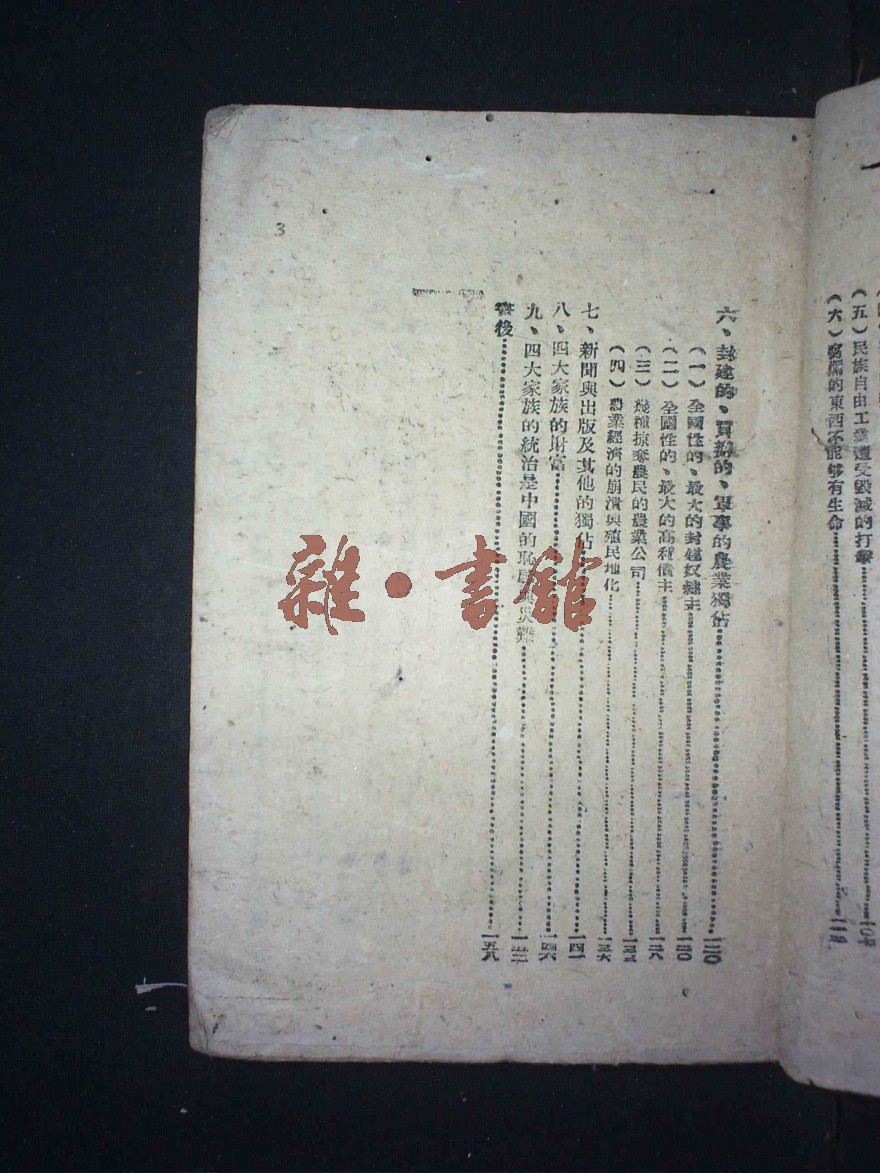 (五)民族自由工業遭受毀滅的打擊…………一〇七
(六)腐爛的東西不能够有生命…………
六、封建的、買辦的、軍事的農業獨佔…………一二〇
(一)全國性的、最大的封建奴隸主…………一二〇
(二)全國性的、最大的高利債主…………一二八
(三)幾種掠奪農民的農業公司…………
(四)農業經濟的崩潰與殖民地化…………一三六
七、新聞與出版及其他的獨佔…………一四一
八、四大家族的財富…………一四六
九、四大家族的統治是中國的恥辱與災難…………
書後…………一五八
3
雜·書館